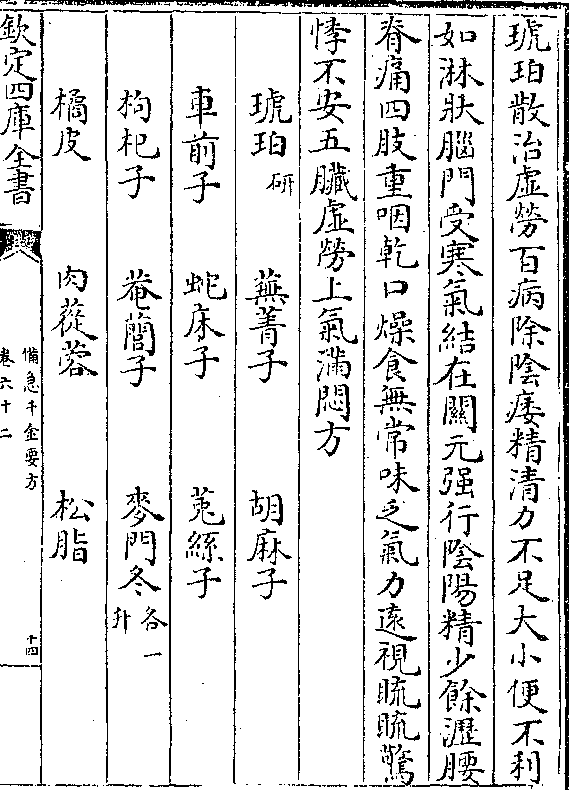 琥珀散治虛勞百病除陰痿精清力不足大小便不利
如淋狀腦門受寒氣結在關元强行陰陽精少餘瀝腰
脊痛四肢重咽乾口燥食無常味乏氣力遠視䀮䀮驚
悸不安五臟虛勞上氣滿悶方
琥珀研 蕪菁子 胡麻子
車前子 蛇床子 菟絲子
枸杞子 菴䕡子 麥門冬各一升
橘皮 肉蓯蓉 松脂
欽定四庫全書
備急千金要方
卷六十二
十四